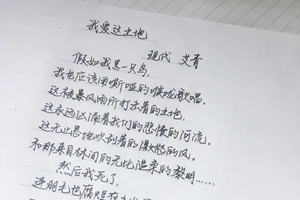 我爱这土地
现代 艾青
假如我是一只鸟，
我也应该用嘶哑的喉咙歌唱：
这被暴风雨所打击着的土地，
这永远汹涌着我们的悲愤的河流，
这无止息地吹刮着的激怒的风，
和那来自林间的无比温柔的黎明……
然后我死了，
连羽毛也腐烂在土地